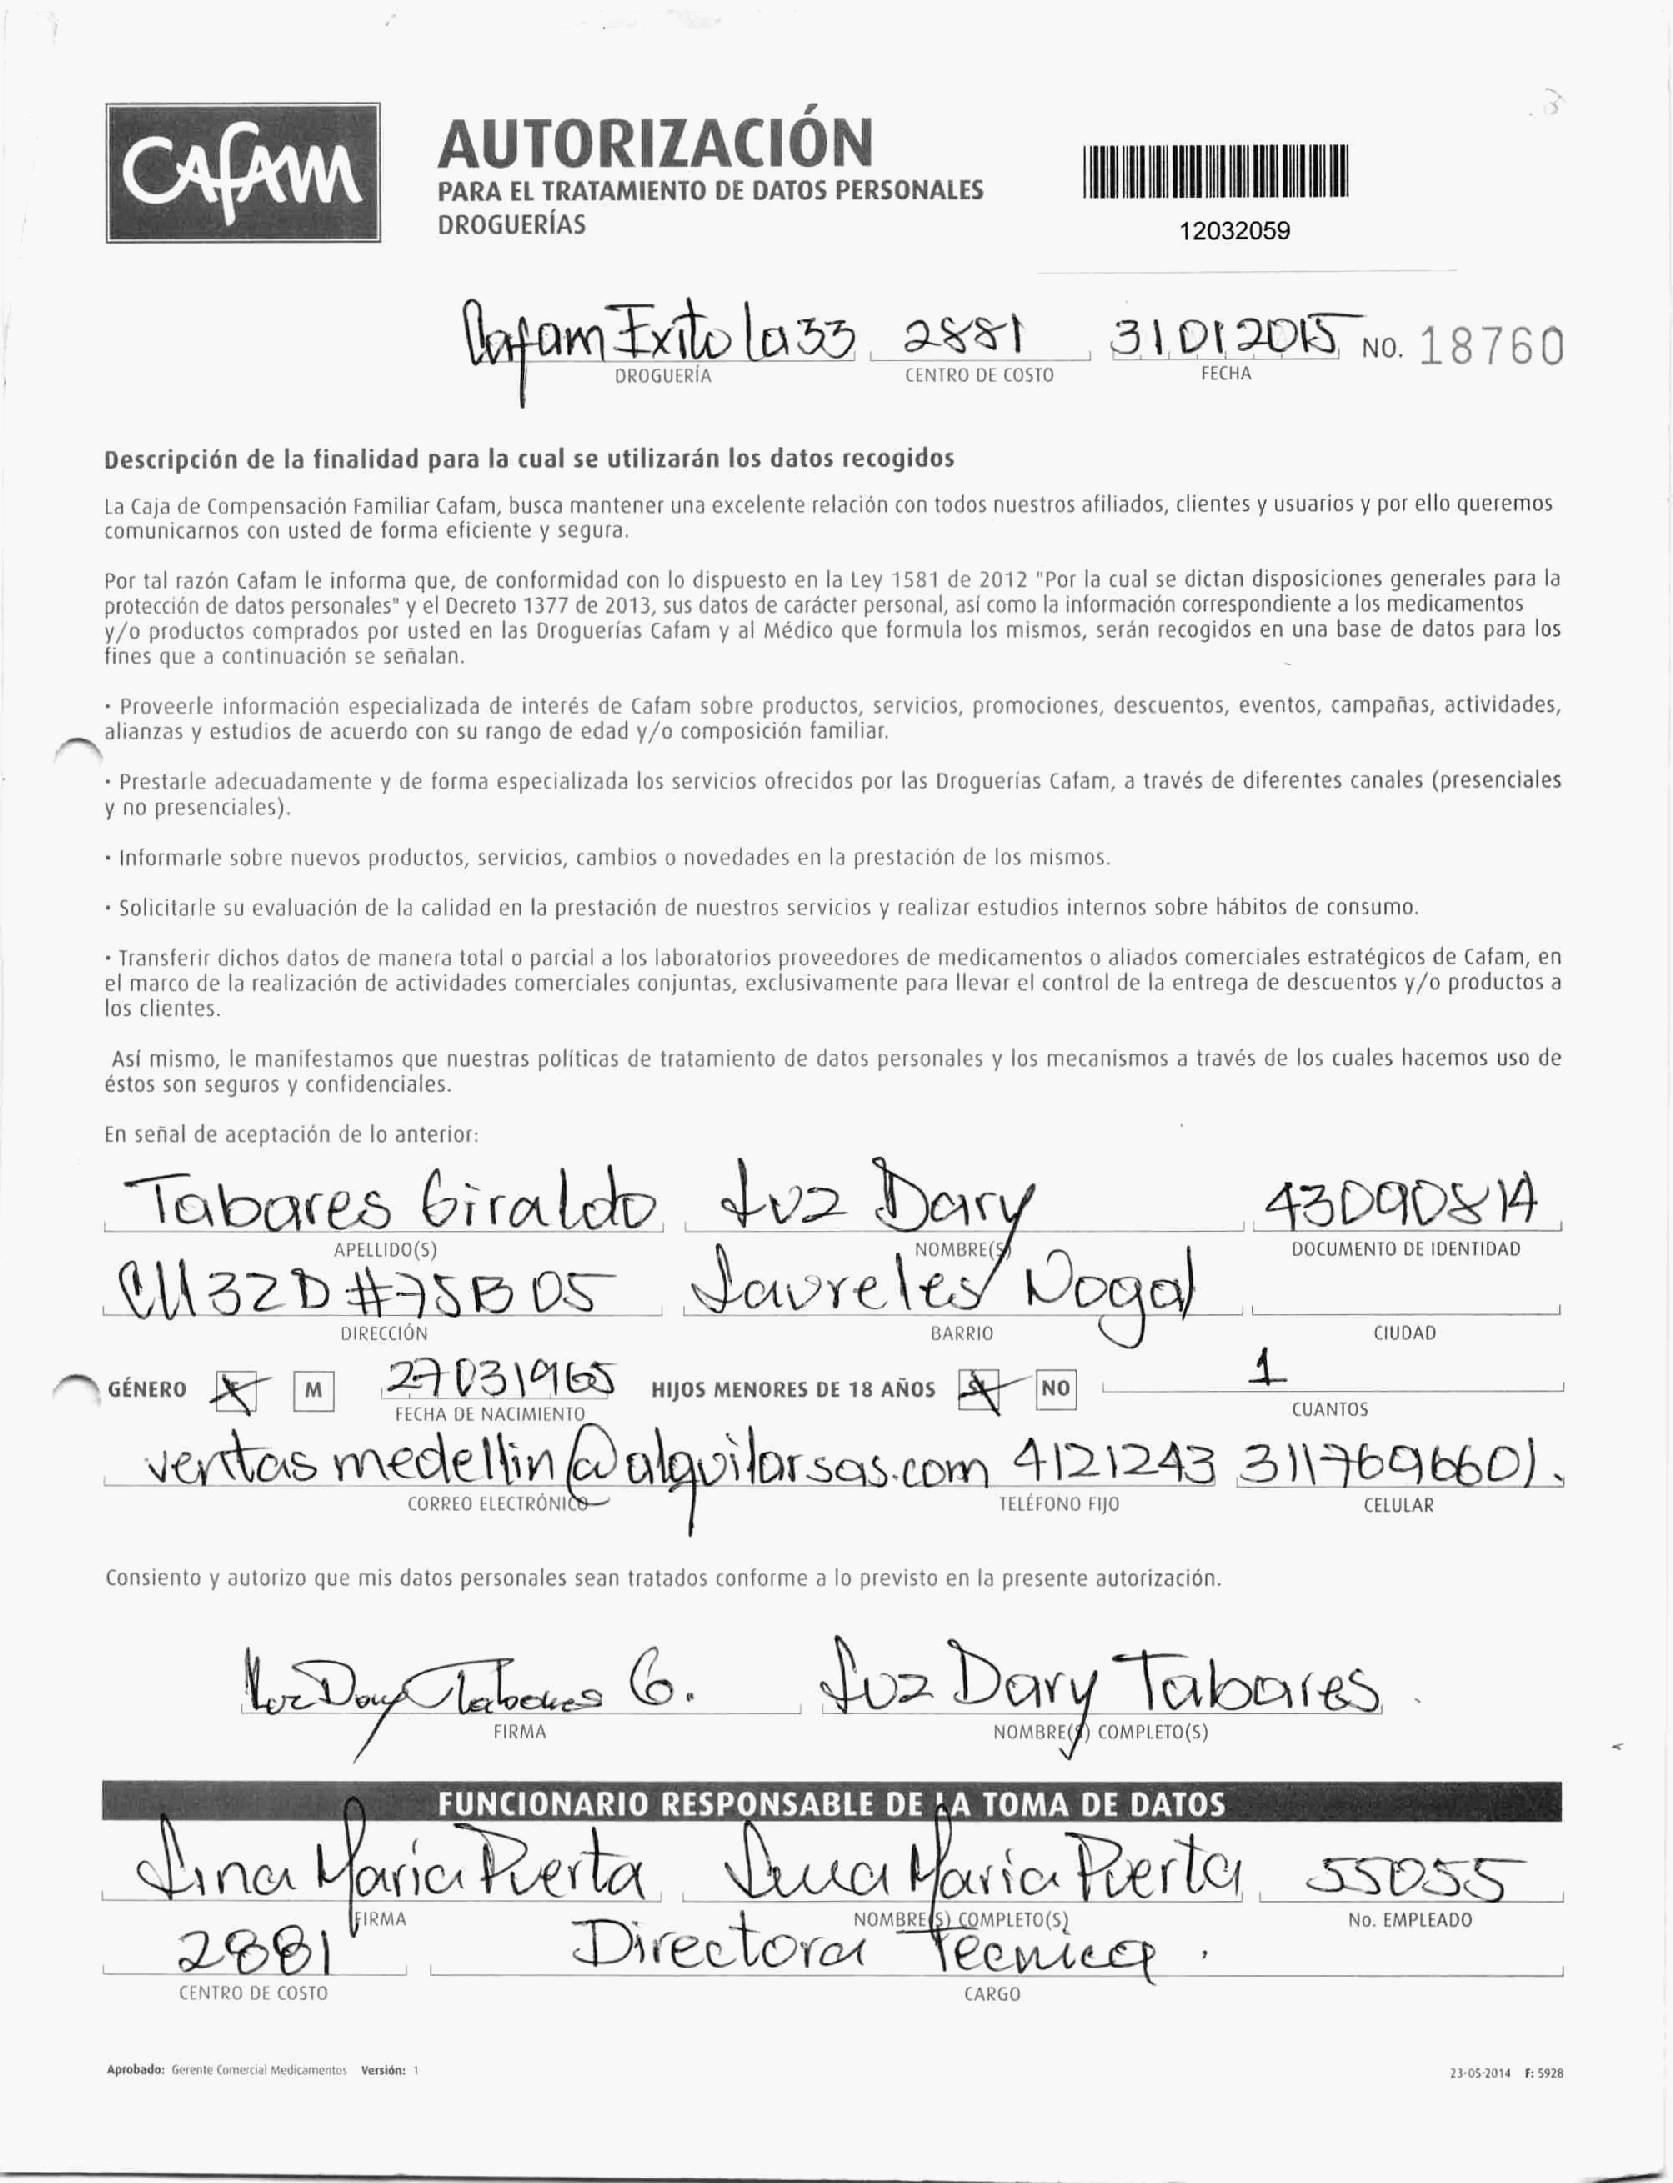 CAfAM
AUTORIZACIÓN
PARA EL TRATAMIENTO DE DATOS PERSONALES
DROGUERÍAS
12032059
Cafam Exito la 33 2881 31012015 NO. 18760
DROGUERÍA CENTRO DE COSTO FECHA
Descripción de la finalidad para la cual se utilizarán los datos recogidos
La Caja de Compensación Familiar Cafam, busca mantener una excelente relación con todos nuestros afiliados, clientes y usuarios y por ello queremos
comunicarnos con usted de forma eficiente y segura.
Por tal razón Cafam le informa que, de conformidad con lo dispuesto en la Ley 1581 de 2012 "Por la cual se dictan disposiciones generales para la
protección de datos personales" y el Decreto 1377 de 2013, sus datos de carácter personal, así como la información correspondiente a los medicamentos
y/o productos comprados por usted en las Droguerías Cafam y al Médico que formula los mismos, serán recogidos en una base de datos para los
fines que a continuación se señalan.
· Proveerle información especializada de interés de Cafam sobre productos, servicios, promociones, descuentos, eventos, campañas, actividades,
alianzas y estudios de acuerdo con su rango de edad y/o composición familiar.
· Prestarle adecuadamente y de forma especializada los servicios ofrecidos por las Droguerías Cafam, a través de diferentes canales (presenciales
y no presenciales).
· Informarle sobre nuevos productos, servicios, cambios o novedades en la prestación de los mismos.
· Solicitarle su evaluación de la calidad en la prestación de nuestros servicios y realizar estudios internos sobre hábitos de consumo.
· Transferir dichos datos de manera total o parcial a los laboratorios proveedores de medicamentos o aliados comerciales estratégicos de Cafam, en
el marco de la realización de actividades comerciales conjuntas, exclusivamente para llevar el control de la entrega de descuentos y/o productos a
los clientes.
Así mismo, le manifestamos que nuestras políticas de tratamiento de datos personales y los mecanismos a través de los cuales hacemos uso de
éstos son seguros y confidenciales.
En señal de aceptación de lo anterior:
Tabares Giraldo Luz Dary 43090814
APELLIDO(S) NOMBRE(S) DOCUMENTO DE IDENTIDAD
Cll 32D #75B 05 Laureles Nogal
DIRECCIÓN BARRIO CIUDAD
GÉNERO M 27031965 HIJOS MENORES DE 18 AÑOS SI NO 1
FECHA DE NACIMIENTO CUANTOS
ventas medellin@alquilarsas.com 4121243 3117696601.
CORREO ELECTRÓNICO TELÉFONO FIJO CELULAR
Consiento y autorizo que mis datos personales sean tratados conforme a lo previsto en la presente autorización.
Luz Dary Tabares G. Luz Dary Tabares
FIRMA NOMBRE(S) COMPLETO(S)
FUNCIONARIO RESPONSABLE DE LA TOMA DE DATOS
Lina Maria Puerta Lina Maria Puerta 55055
FIRMA NOMBRE(S) COMPLETO(S) No. EMPLEADO
2881 Directora Tecnica.
CENTRO DE COSTO CARGO
Aprobado: Gerente Comercial Medicamentos Versión: 1 23-05-2014 F: 5928